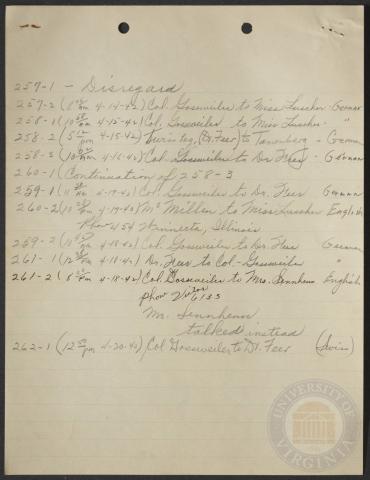 257-1 - Disregard
257-2 ( 4-14-42) Col. Gossweiler to Miss Luscher - German
258-1 ( 4-15-42) Col. Gossweiler to Miss Luscher - "
258-2 ( pm 4-15-42) to Tanenberg - German
258-3 ( 4-16-42) Col. Gossweiler to Dr. Feer - German
260-1 (Continuation of 258-3
259-1 ( 4-19-42) Col. Gossweiler to Dr. Feer German
260-2 ( 4-19-42) Mc Millen to Miss Luscher English
Phone 454 Winnetka, Illinois
259-2 ( 4-18-42) Col. Gossweiler to Dr. Feer German
261-1 ( 4-18-42) Dr. Feer to Col. Gossweiler "
261-2 ( pm 4-18-42) Col. Gossweiler to Mrs. Sennhenn English
phone 6133
Mr. Sennhenn
talked instead
262-1 (12 50 pm 4-20-42) Col Gossweiler to Dr. Feer (Swiss)
UNIVERSITY OF VIRGINIA